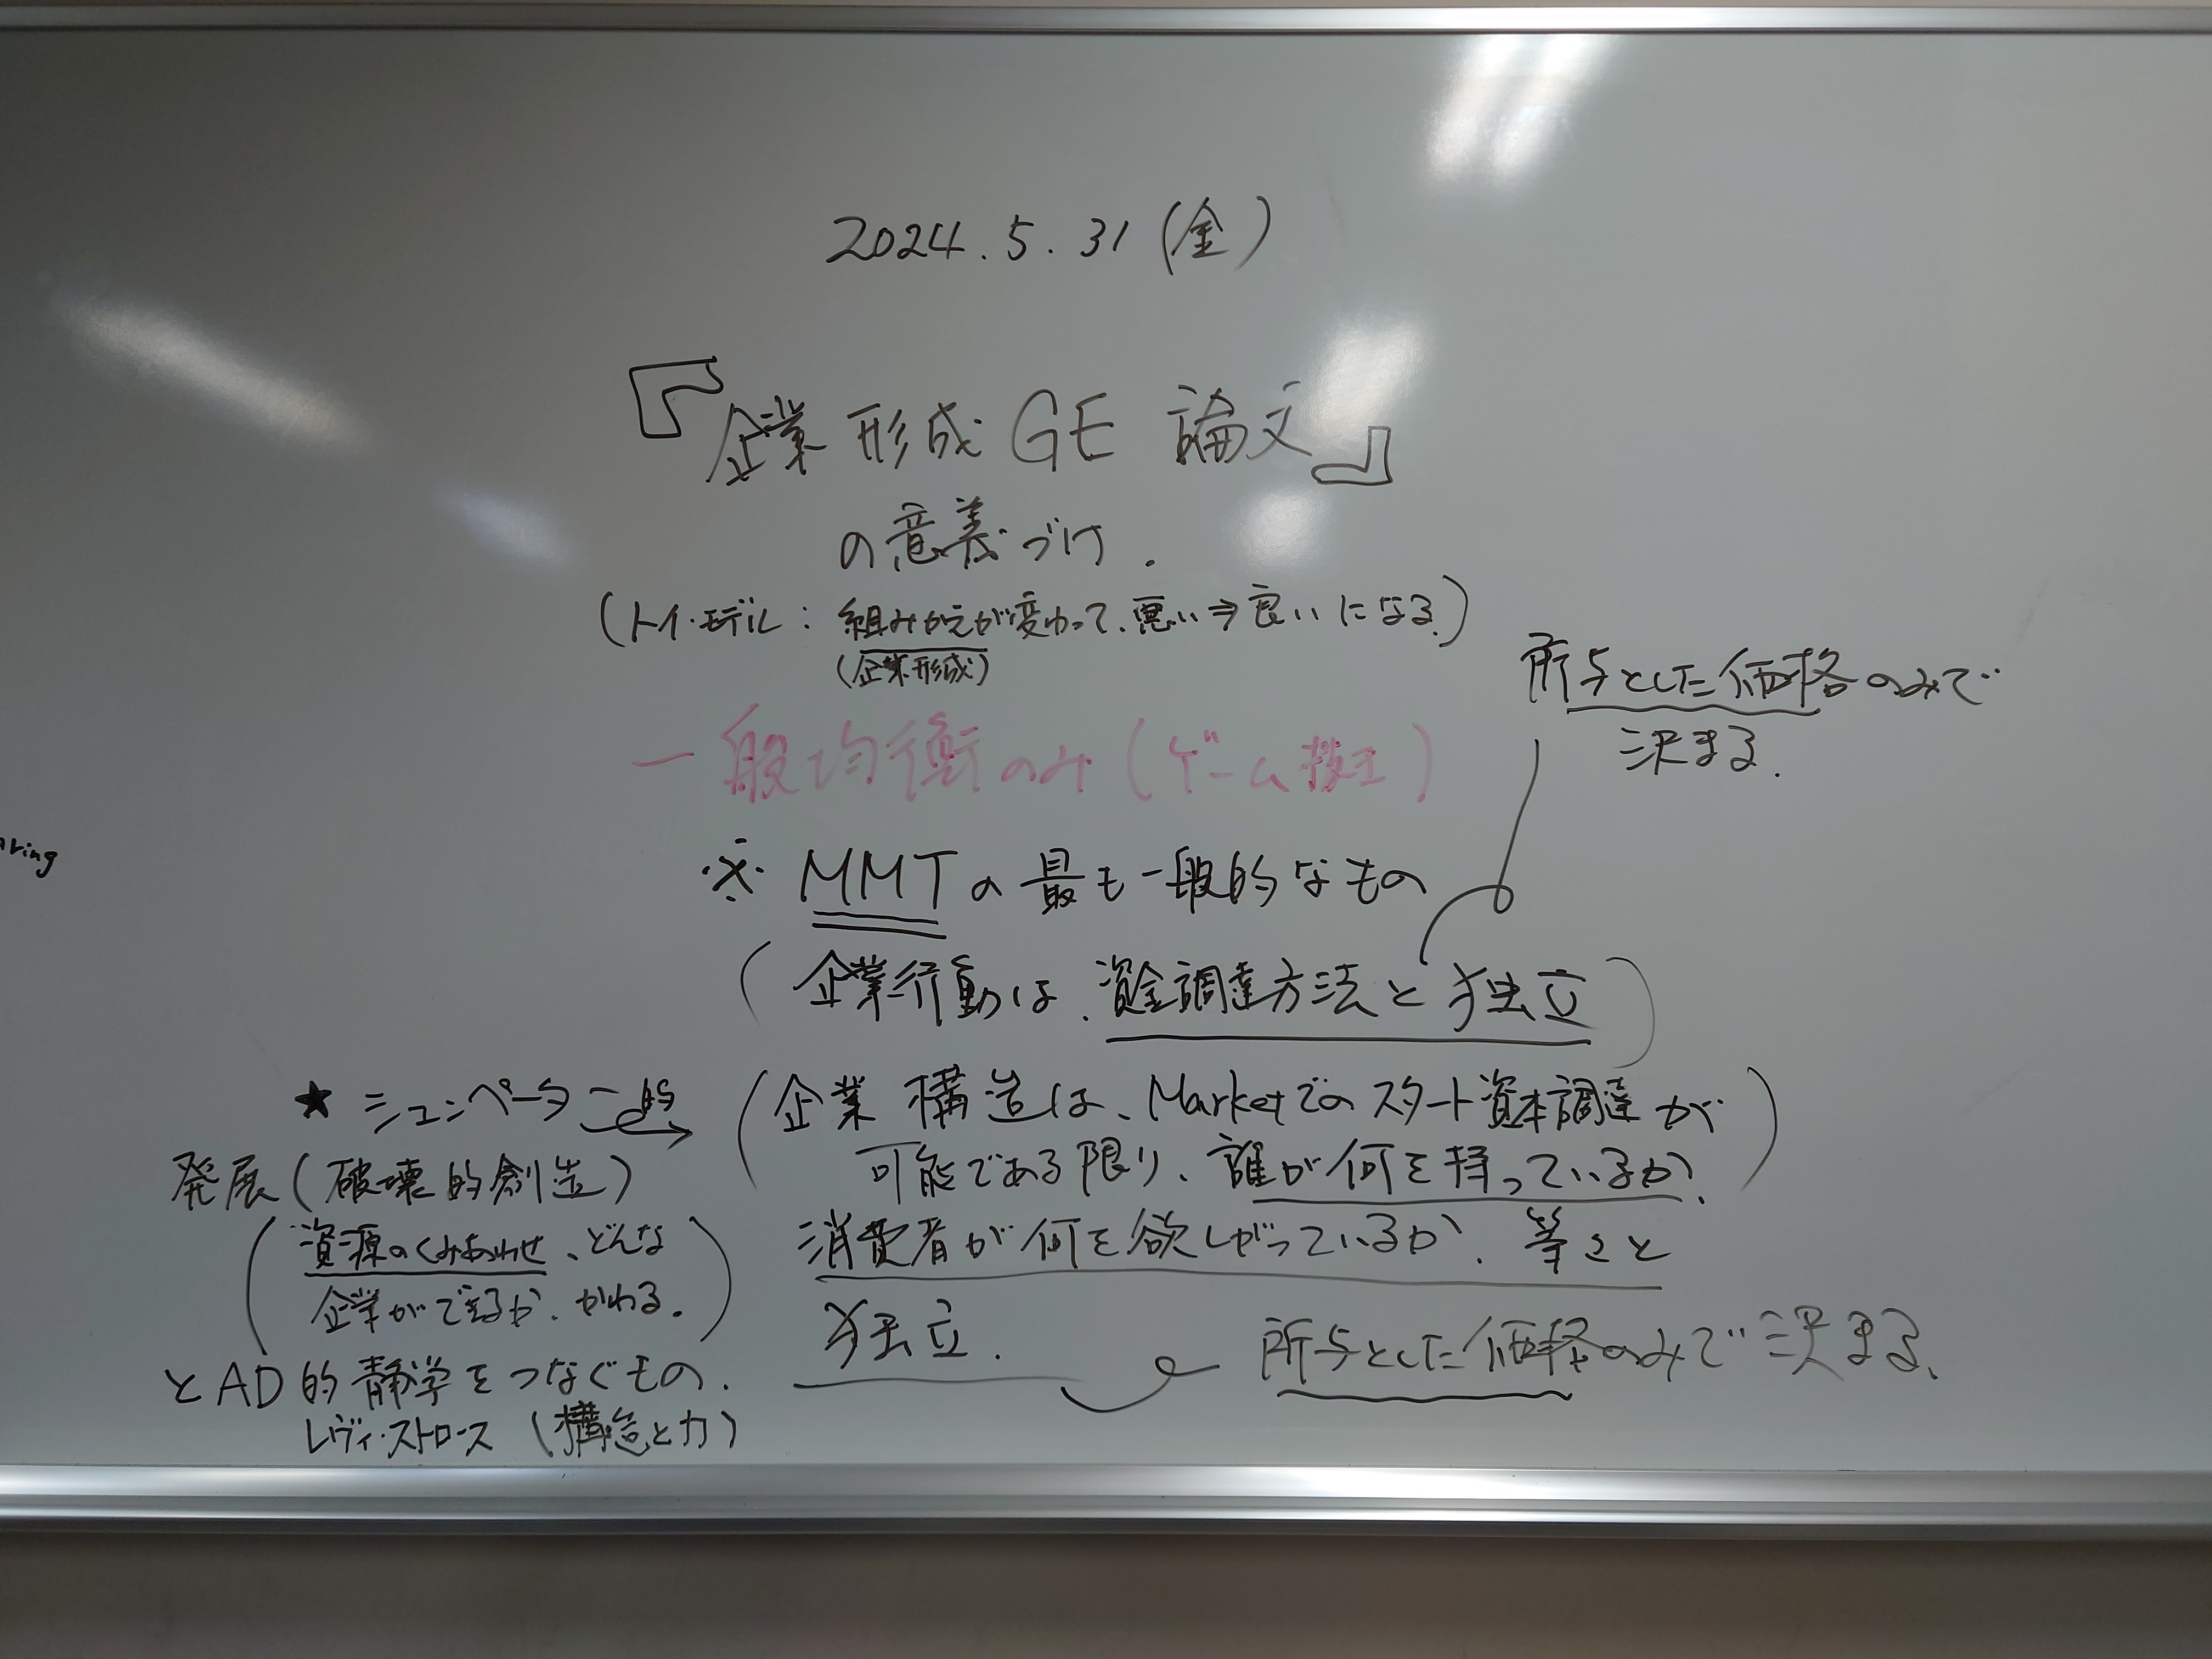 2024.5.31(金)
『企業形成GE論文』
の意義づけ.
(トイ・モデル: 組みかえが変わって、悪い⇒良いになる.)
(企業形成)
所与とした価格のみで
決まる.
一般均衡のみ(ゲーム
※ MMTの最も一般的なもの
(企業行動は、資金調達方法と独立)
★シュンペーター的
(企業構造は、Marketでのスタート資本調達が
可能である限り、誰が何を持っているか、
消費者が何を欲しがっているか、等々と
独立.
所与とした価格のみで決まる、
発展(破壊的創造)
(資源のくみあわせ、どんな
企業ができるか、かわる。)
とAD的静学をつなぐもの.
レヴィ・ストロース (構造と力)
ring